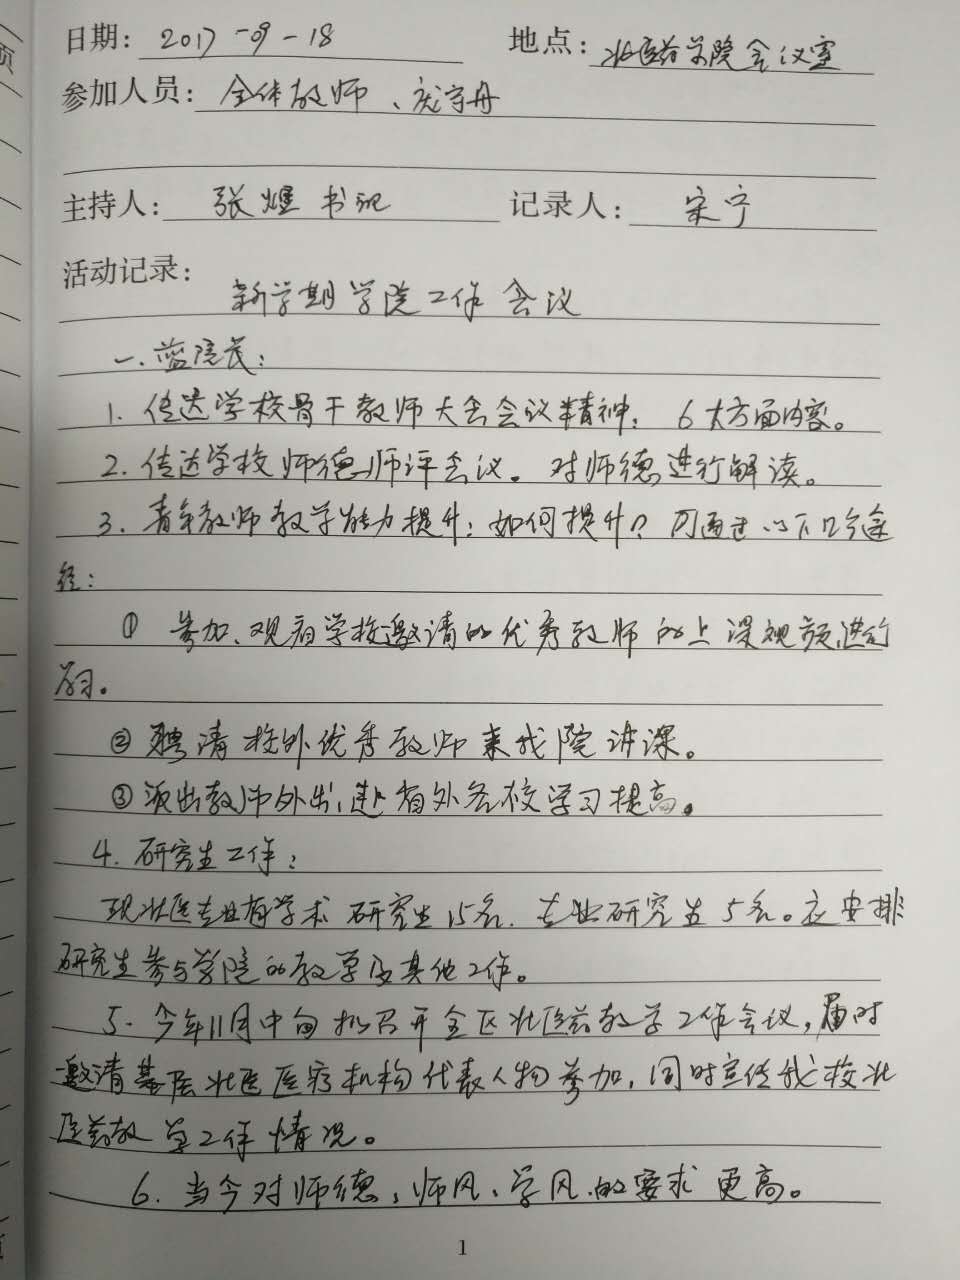 日期: 2017-09-18 地点: 壮医药学院会议室
参加人员: 全体教师、庞宇舟
主持人: 张煜 书记 记录人: 宋宁
活动记录:
新学期学院工作会议
一.蓝院长:
1. 传达学校骨干教师大会会议精神: 6大方面内容。
2. 传达学校师德师评会议。对师德进行解读。
3. 青年教师教学能力提升: 如何提升? 可通过以下几个途
径:
① 参加、观看学校邀请的优秀教师的上课视频,进行
学习。
② 聘请校外优秀教师来我院讲课。
③ 派出教师外出,进省外各校学习提高。
4. 研究生工作:
现壮医专业有学术研究生15名, 专业研究生5名。应安排
研究生参与学院的教学及其他工作。
5. 今年11月中旬拟召开全区壮医药教学工作会议, 届时
邀请基层壮医医疗机构代表人物参加, 同时宣传我校壮
医药教学工作情况。
6. 当今对师德、师风、学风的要求更高。
1